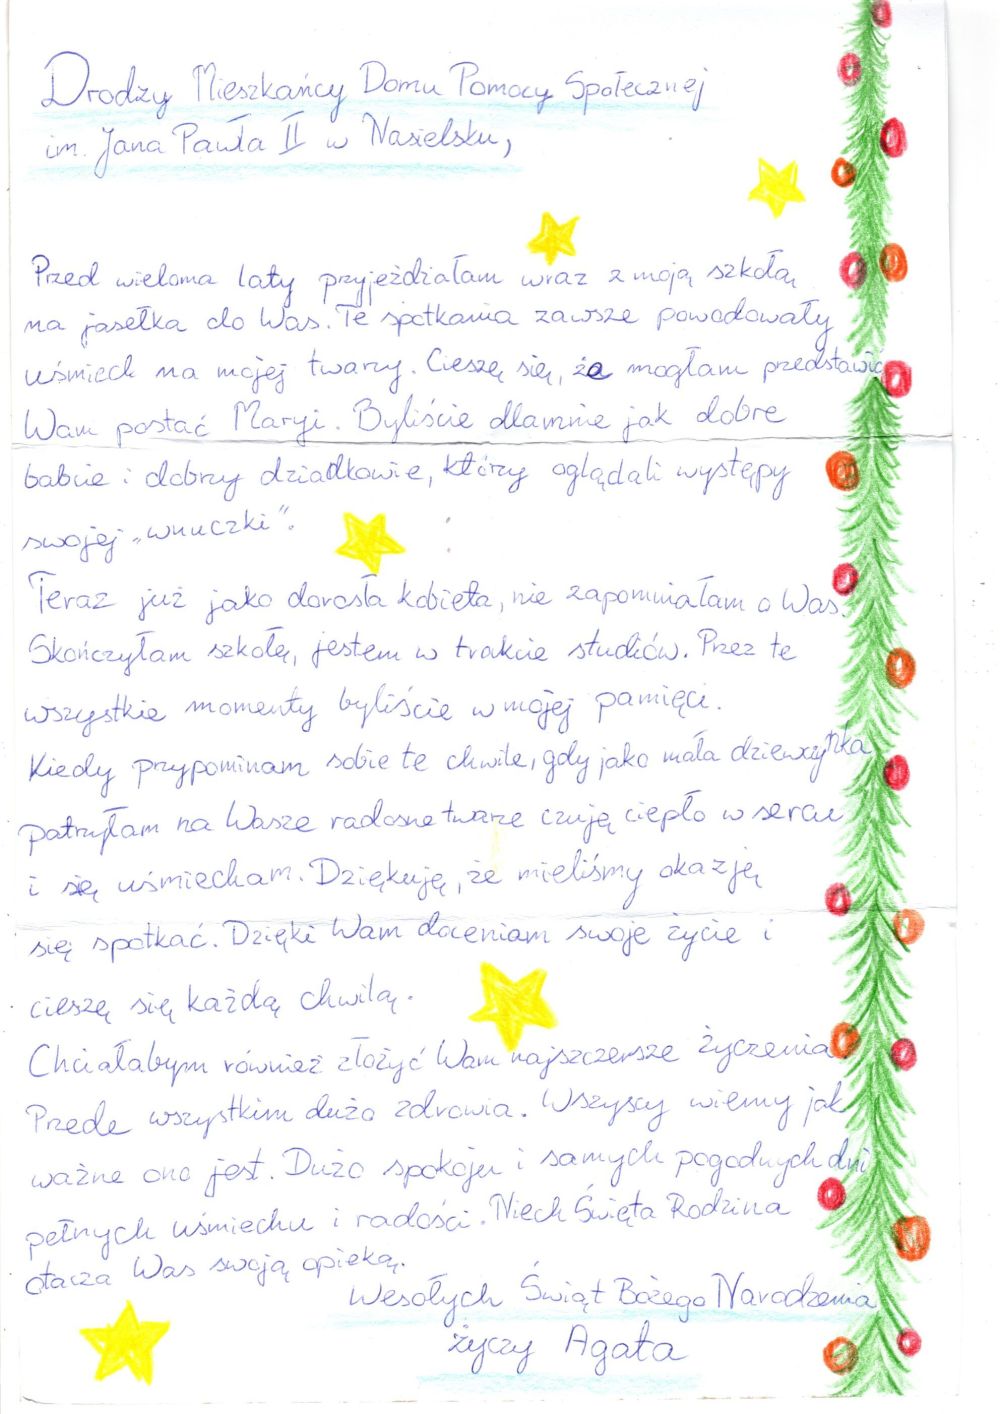 Drodzy Mieszkańcy Domu Pomocy Społecznej
im. Jana Pawła II w Nasielsku,
Przed wieloma laty przyjeżdziałam wraz z moją szkołą
na jasełka do Was. Te spotkania zawsze powodowały
uśmiech na mojej twarzy. Cieszę się, że mogłam przedstawić
Wam postać Maryi. Byliście dlamnie jak dobre
babcie i dobrzy dziadkowie, którzy oglądali występy
swojej „wnuczki”.
Teraz już jako dorosła kobieta, nie zapominałam o Was.
Skończyłam szkołę, jestem w trakcie studiów. Przez te
wszystkie momenty byliście w mojej pamięci.
Kiedy przypominam sobie te chwile, gdy jako mała dziewczynka
patrzyłam na Wasze radosne twarze czuję ciepło w sercu
i się uśmiecham. Dziękuję, że mieliśmy okazję
się spotkać. Dzięki Wam doceniam swoje życie i
cieszę się każdą chwilą.
Chciałabym również złożyć Wam najszczersze życzenia
Przede wszystkim dużo zdrowia. Wszyscy wiemy jak
ważne ono jest. Dużo spokoju i samych pogodnych dni
pełnych uśmiechu i radości. Niech Święta Rodzina
otacza Was swoją opieką.
Wesołych Świąt Bożego Narodzenia
życzy Agata